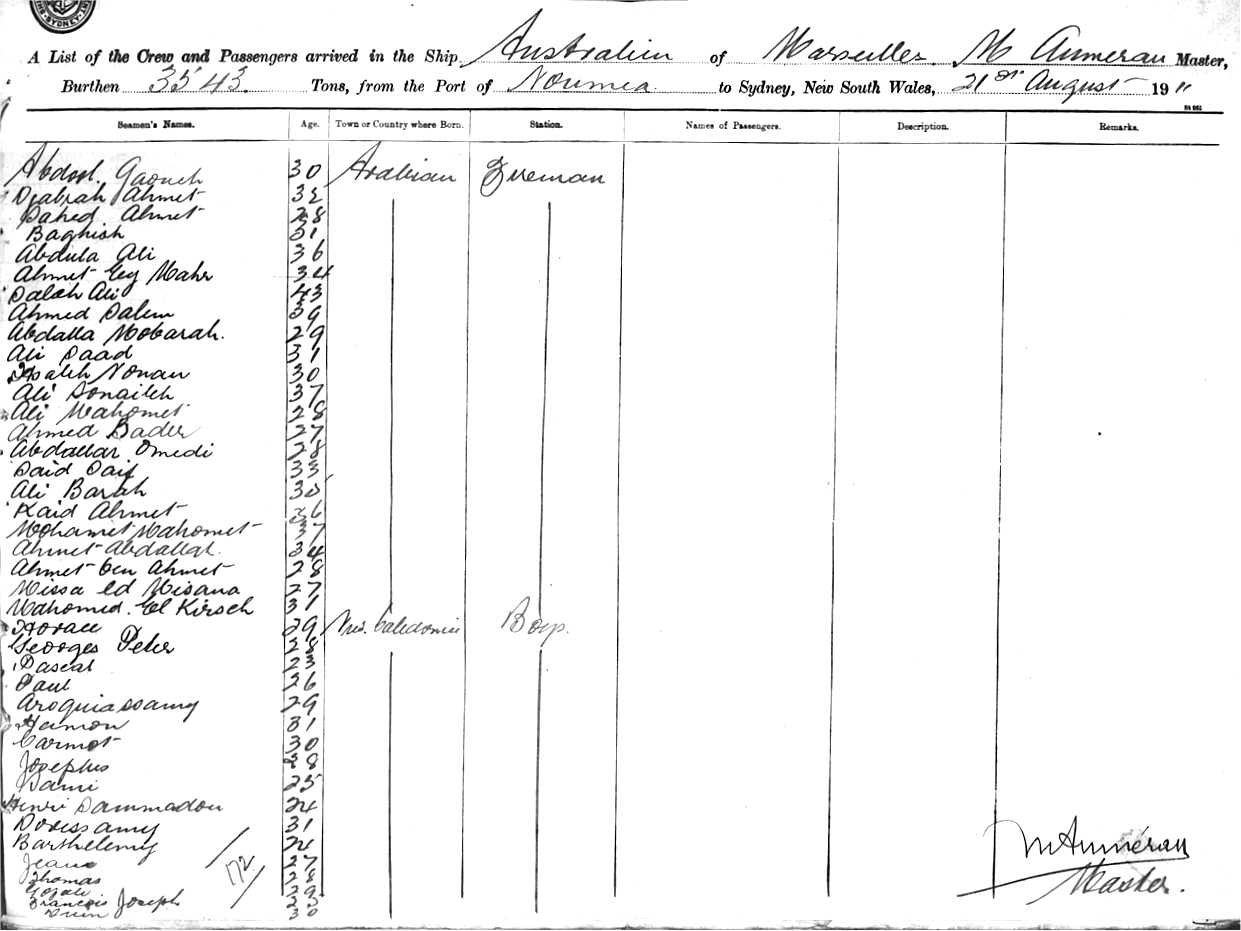 SYDNEY
A List of the Crew and Passengers arrived in the Ship Australien of Marseilles M Aumeran Master,
Burthen 3543 Tons, from the Port of Noumea to Sydney, New South Wales, 21st August 1911
Seamen's Names. Age. Town or Country where Born. Station. Names of Passengers. Description. Remarks.
Abdool Gaouch 30 Arabian Fireman
Djabrah Ahmet 32
Sahed Ahmet 28
Baghish 31
Abdula Ali 36
Ahmet Mahr 34
Salah Ali 43
Ahmed Salem 39
Abdalla Mobarah. 29
Ali Saad 31
Nonan 30
Ali Sonaileh 37
Ali Mahomet 28
Ahmed Bader 27
Abdallar Omedi 28
Said Saif 33
Ali Barah 35
Kaid Ahmet 26
Mohamet Mahomet 37
Ahmet Abdallah. 34
Ahmet ben Ahmet 28
Missa ed Misana 27
Mahomed. El Kirsch 31
Horace 29 New Caledonia Boys.
Georges Peter 28
Pascal 23
Paul 26
Aroquiassamy 29
Hamon 31
Carmot 30
Josephus 28
Sami 25
Henri Sammadou 24
Dorissamy 31
Barthelemy 24
Jean 27
Thomas 28
172
Francois Joseph 25
30
M Aumeran
Master.